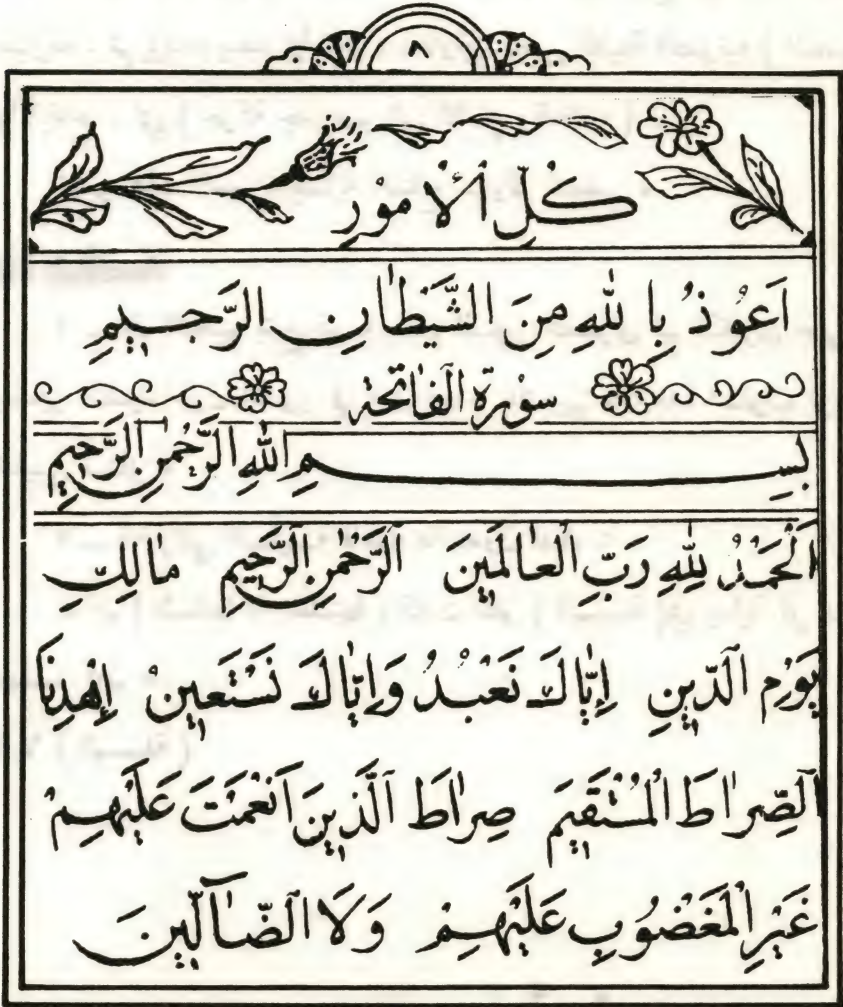 ٨
كُلِّ الْأُمُوْرِ
اَعُوْذُ بِاللهِ مِنَ الشَّيْطٰانِ الرَّجِيمِ
سوْرة الفٰاتحة
بِسِمِ اللهِ الرَّحْمٰنِ الرَّحِيمِ
اَلْحَمْدُ لِلّٰهِ رَبِّ الْعٰالَمَينَ اَلرَّحْمٰنِ الرَّحِيمِ مٰالِكِ
يَوْمِ الدّينِ اِيّٰاكَ نَعْبُدُ وَاِيّٰاكَ نَسْتَعينْ اِهْدِنَا
الصِّرٰاطَ الْمُسْتَقيَم صِرٰاطَ الَّذينَ اَنْعَمْتَ عَلَيْهِمْ
غَيْرِ الْمَغْضُوبِ عَلَيْهِمْ وَلَا الضّٰآلّينَ